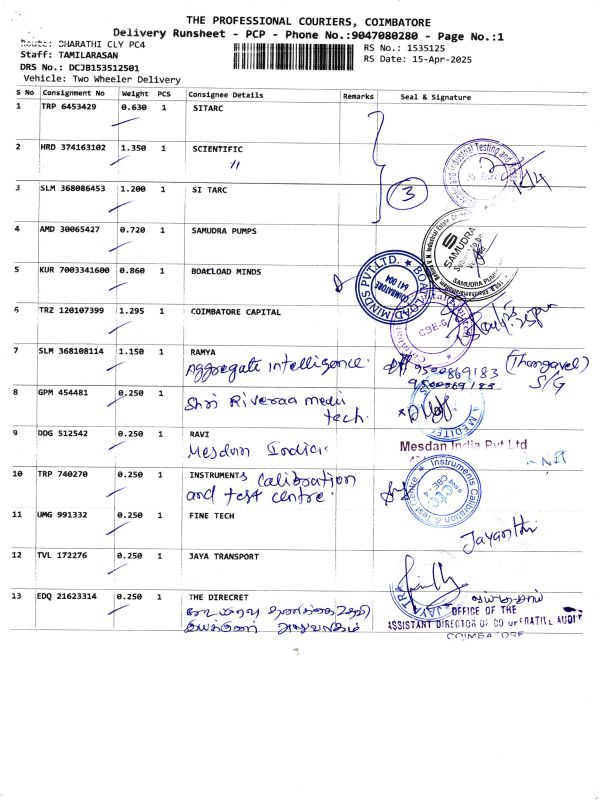 THE PROFESSIONAL COURIERS, COIMBATORE
Delivery Runsheet - PCP - Phone No.:9047080280 - Page No.:1
Route: BHARATHI CLY PC4
RS No.: 1535125
Staff: TAMILARASAN
RS Date: 15-Apr-2025
DRS No.: DCJB153512501
Vehicle: Two Wheeler Delivery
S No Consignment No Weight PCS Consignee Details Remarks Seal & Signature
1 TRP 6453429 0.630 1 SITARC
2 HRD 374163102 1.350 1 SCIENTIFIC
"
3 SLM 368086453 1.200 1 SI TARC
3
4 AMD 30065427 0.720 1 SAMUDRA PUMPS
SAMUDRA
5 KUR 7003341600 0.860 1 BOACLOAD MINDS
BOACLOAD MINDS PVT.LTD.
COIMBATORE
641 004
6 TRZ 120107399 1.295 1 COIMBATORE CAPITAL
CBE-6
7 SLM 368108114 1.150 1 RAMYA
Aggregate intelligence.
9500869183 (Thangavel)
9500869183 S/G
8 GPM 454481 0.250 1
Shri Riveraa medi
tech.
9 DDG 512542 0.250 1 RAVI
Mesdan India.
Mesdan India Pvt Ltd
10 TRP 740270 0.250 1 INSTRUMENTS Calibration
and test centre.
Instruments Calibration & Test Centre
CBE - 4
11 UMG 991332 0.250 1 FINE TECH
Jayanthi
12 TVL 172276 0.250 1 JAYA TRANSPORT
13 EDQ 21623314 0.250 1 THE DIRECRET
OFFICE OF THE
ASSISTANT DIRECTOR OF CO OPERATIVE AUDIT
COIMBATORE